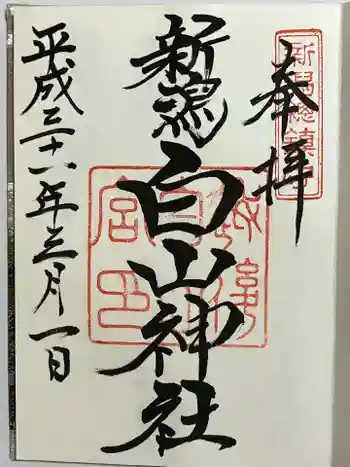 奉拝
新潟総鎮
新潟白山神社
平成三十一年三月一日